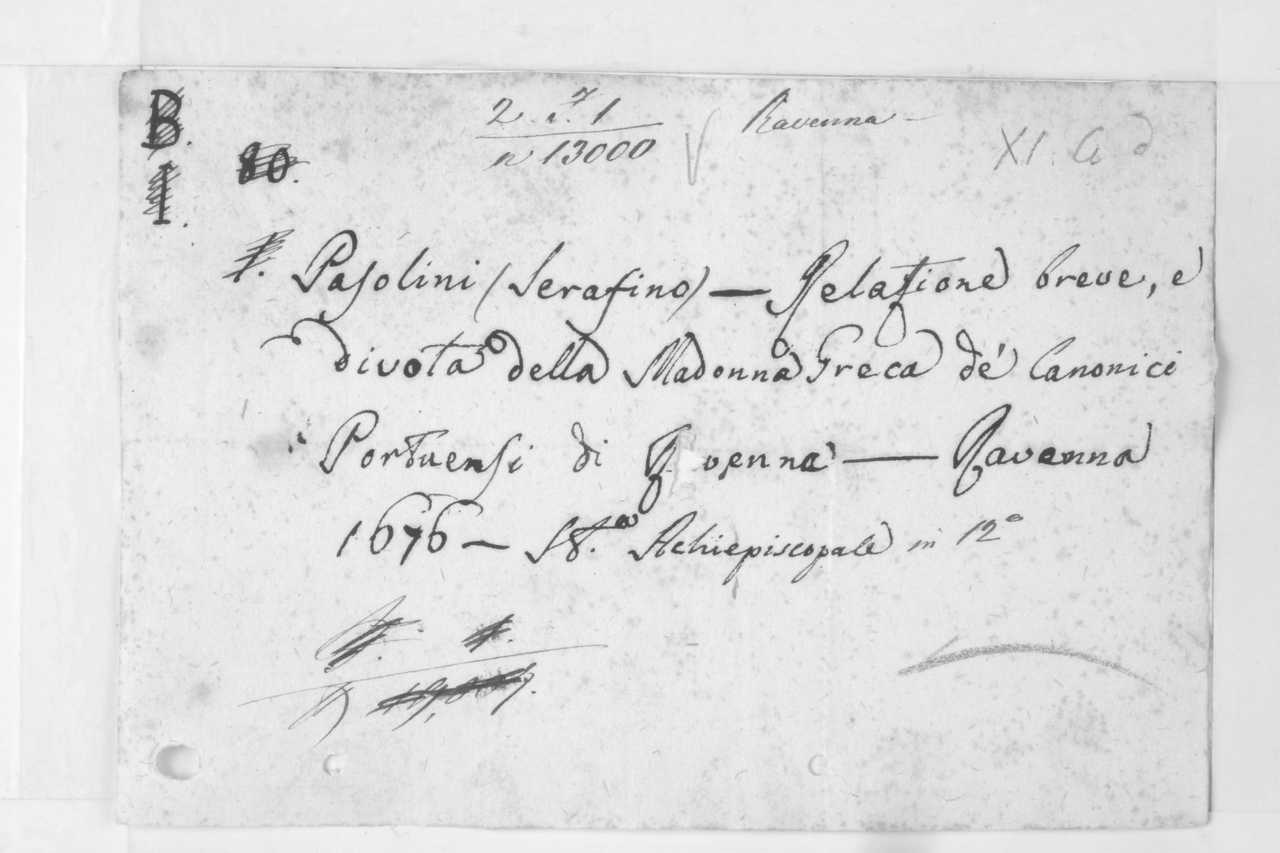 B.
I.
80.
2. 7. 1
n 13000
Ravenna
XI. G d
Pasolini (Serafino) — Relazione breve, e
divota della Madonna Greca de' Canonici
Portuensi di Ravenna — Ravenna
1676 — St.a Achiepiscopale in 12°